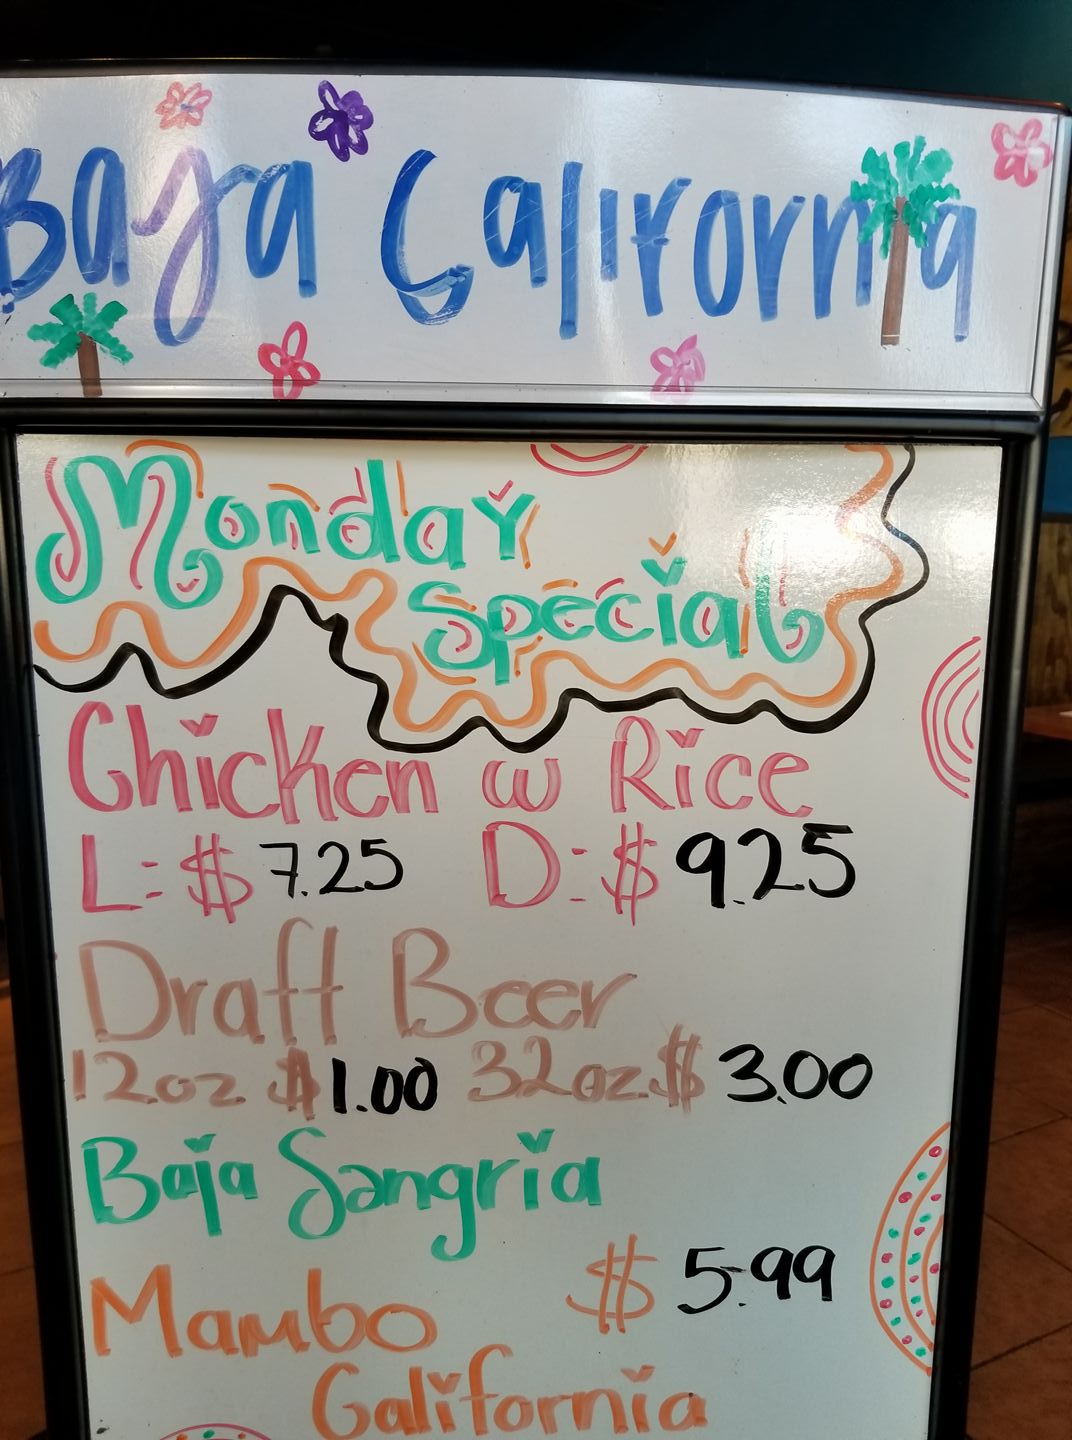 Baja California
Monday
Special
Chicken w Rice
L: $7.25 D: $9.25
Draft Beer
12oz $1.00 32oz $3.00
Baja Sangria
$5.99
Mambo
California